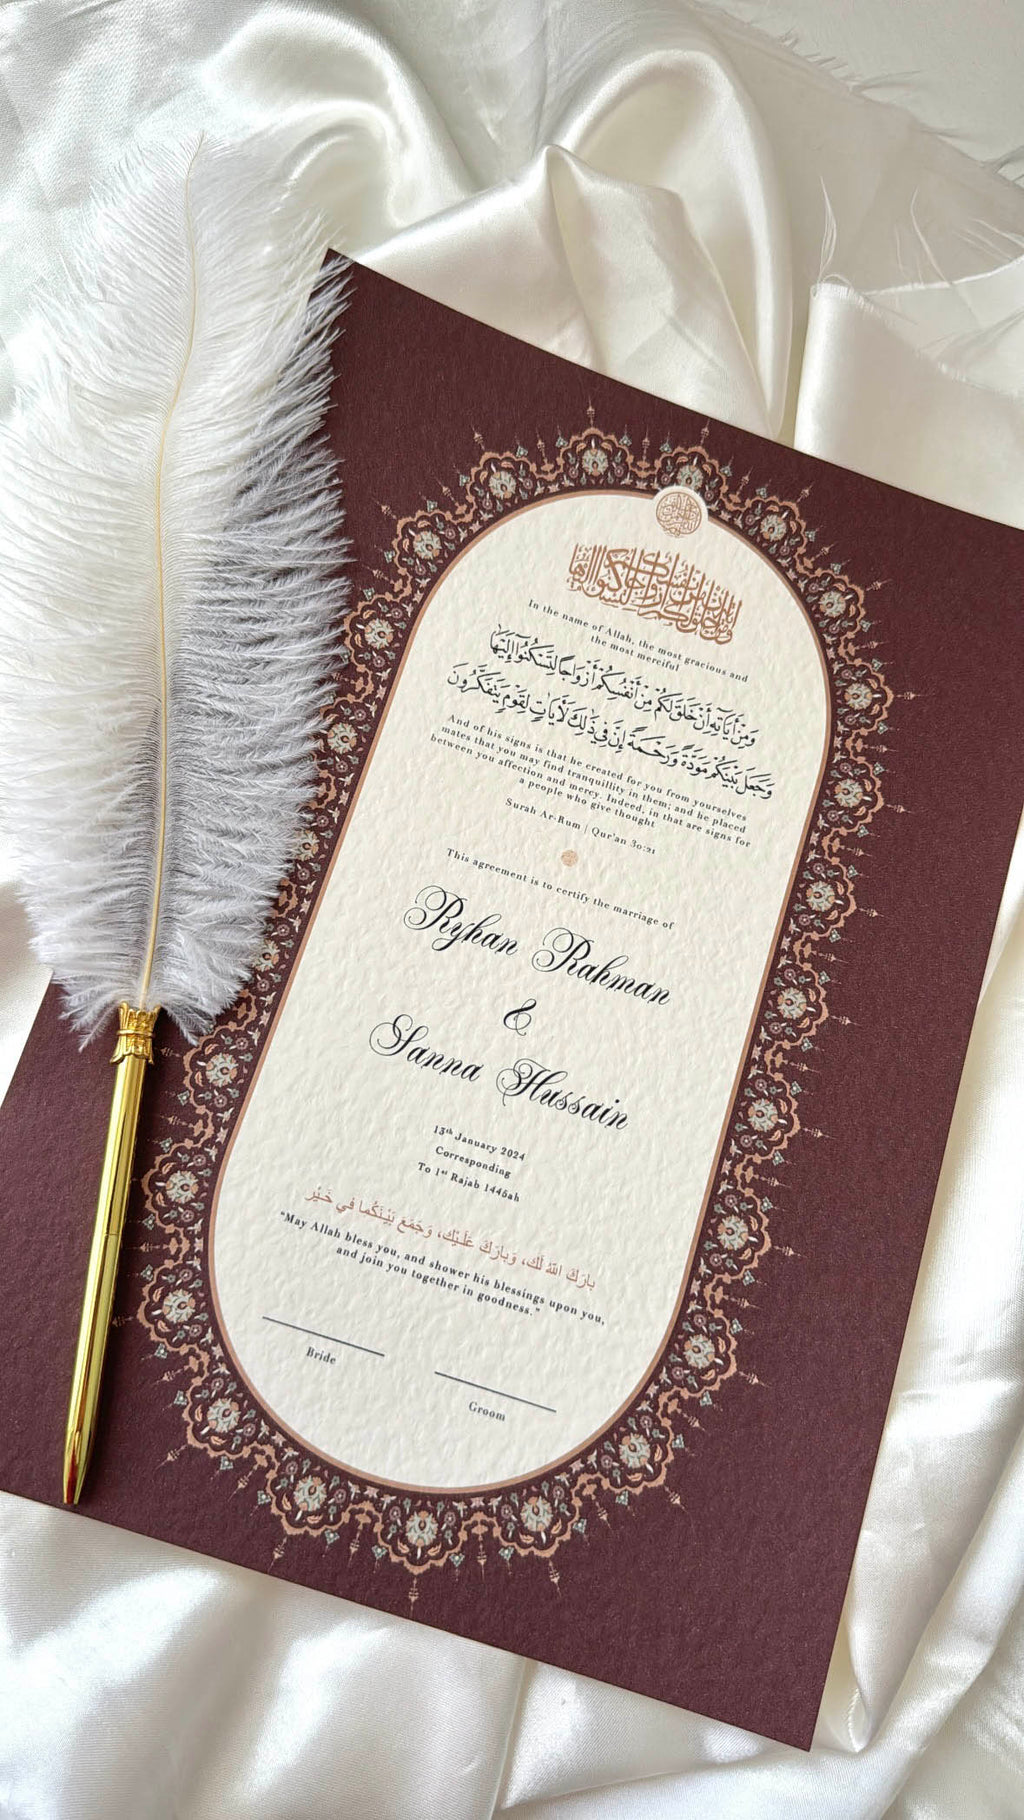 In the name of Allah, the most gracious and
the most merciful
وَمِنْ آيَاتِهِ أَنْ خَلَقَ لَكُم مِّنْ أَنْفُسِكُمْ أَزْوَاجًا لِتَسْكُنُوا إِلَيْهَا
وَجَعَلَ بَيْنَكُمْ مَوَدَّةً وَرَحْمَةً إِنَّ فِي ذَٰلِكَ لَآيَاتٍ لِقَوْمٍ يَتَفَكَّرُونَ
And of his signs is that he created for you from yourselves
mates that you may find tranquillity in them; and he placed
between you affection and mercy. Indeed, in that are signs for
a people who give thought
Surah Ar-Rum | Qur'an 30:21
This agreement is to certify the marriage of
Ryhan Rahman
&
Sanna Hussain
13th January 2024
Corresponding
To 1st Rajab 1445ah
بارَكَ اللهُ لَك، وَبارَكَ عَلَـيْك، وَجَمَعَ بَيْنَكُما في خَـيْر
"May Allah bless you, and shower his blessings upon you,
and join you together in goodness."
Bride
Groom